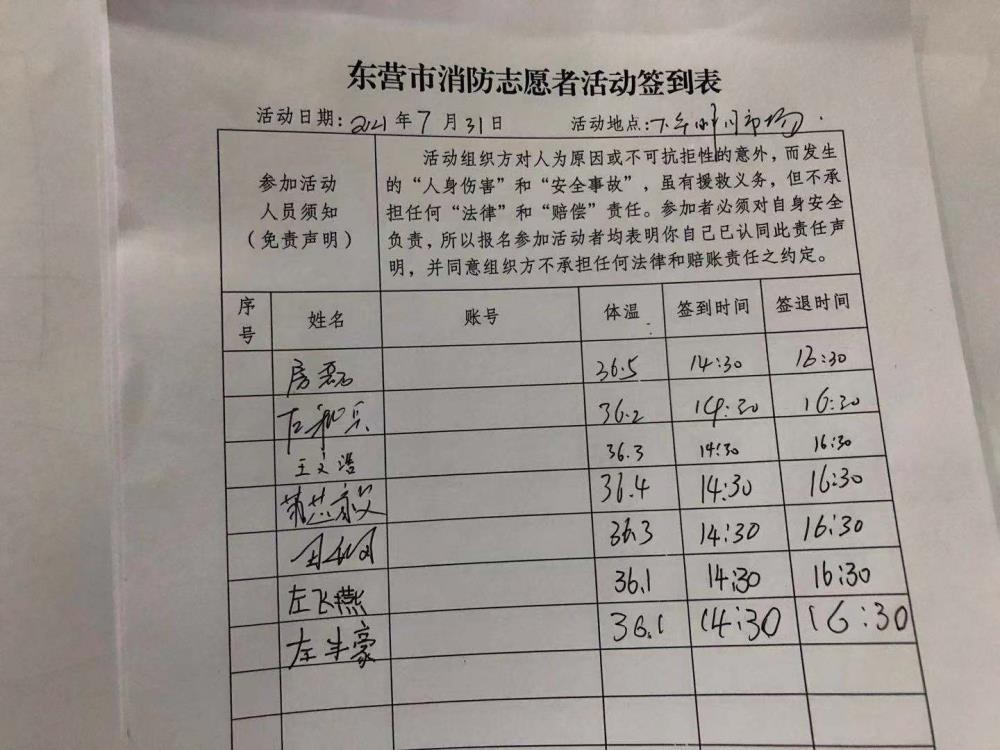 东营市消防志愿者活动签到表
活动日期:2021年7月31日 活动地点:
参加活动
人员须知
(免责声明)
活动组织方对人为原因或不可抗拒性的意外,而发生
的“人身伤害”和“安全事故”,虽有援救义务,但不承
担任何“法律”和“赔偿”责任。参加者必须对自身安全
负责,所以报名参加活动者均表明你自己已认同此责任声
明,并同意组织方不承担任何法律和赔账责任之约定。
序号 姓名 账号 体温 签到时间 签退时间
房磊 36.5 14:30 16:30
36.2 14:30 16:30
王文浩 36.3 14:30 16:30
36.4 14:30 16:30
36.3 14:30 16:30
左飞燕 36.1 14:30 16:30
豪 36.1 14:30 16:30